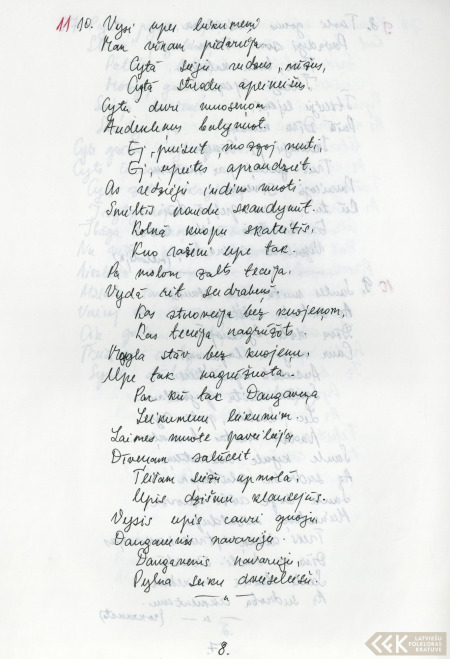 11 10. Vysi upes leikumeni
Man vīnam pīdarēja
Cytā sieju rudzus, mīžus,
Cytā strodu apeineišus.
Cytu duru muoseņom
Audekleņus balynuot.
Ej, puiseit, mozgoj muti,
Ej, upeitēs apraudzeit.
As redzieju iudinī muoti
Smiltīs naudu skandynūt.
Kolnā kuopu skateitīs,
Kur ražena upe tak.
Pa molom zalts tecēja,
Vydā rit sudrabeņš.
Kas stuovēja bez kuojeņom,
Kas tecēja nagrīžūts.
Migla stuov bez kuojeņu,
Upe tak nagrīžuota.
Par kū tak Daugaveņa
Leikumeņu leikumim.
Laimes muote paveilēja
Dīveņam zalūceit.
Teišam sieži upmolā,
Upis dzismu klausejūs.
Vysis upis cauri guoju,
Daugaveņis navarieju.
Daugaveņis navarieju,
Pylna seiku dvēseleišu.
"
8.
LATVIEŠU
FOLKLORAS
KRĀTUVE